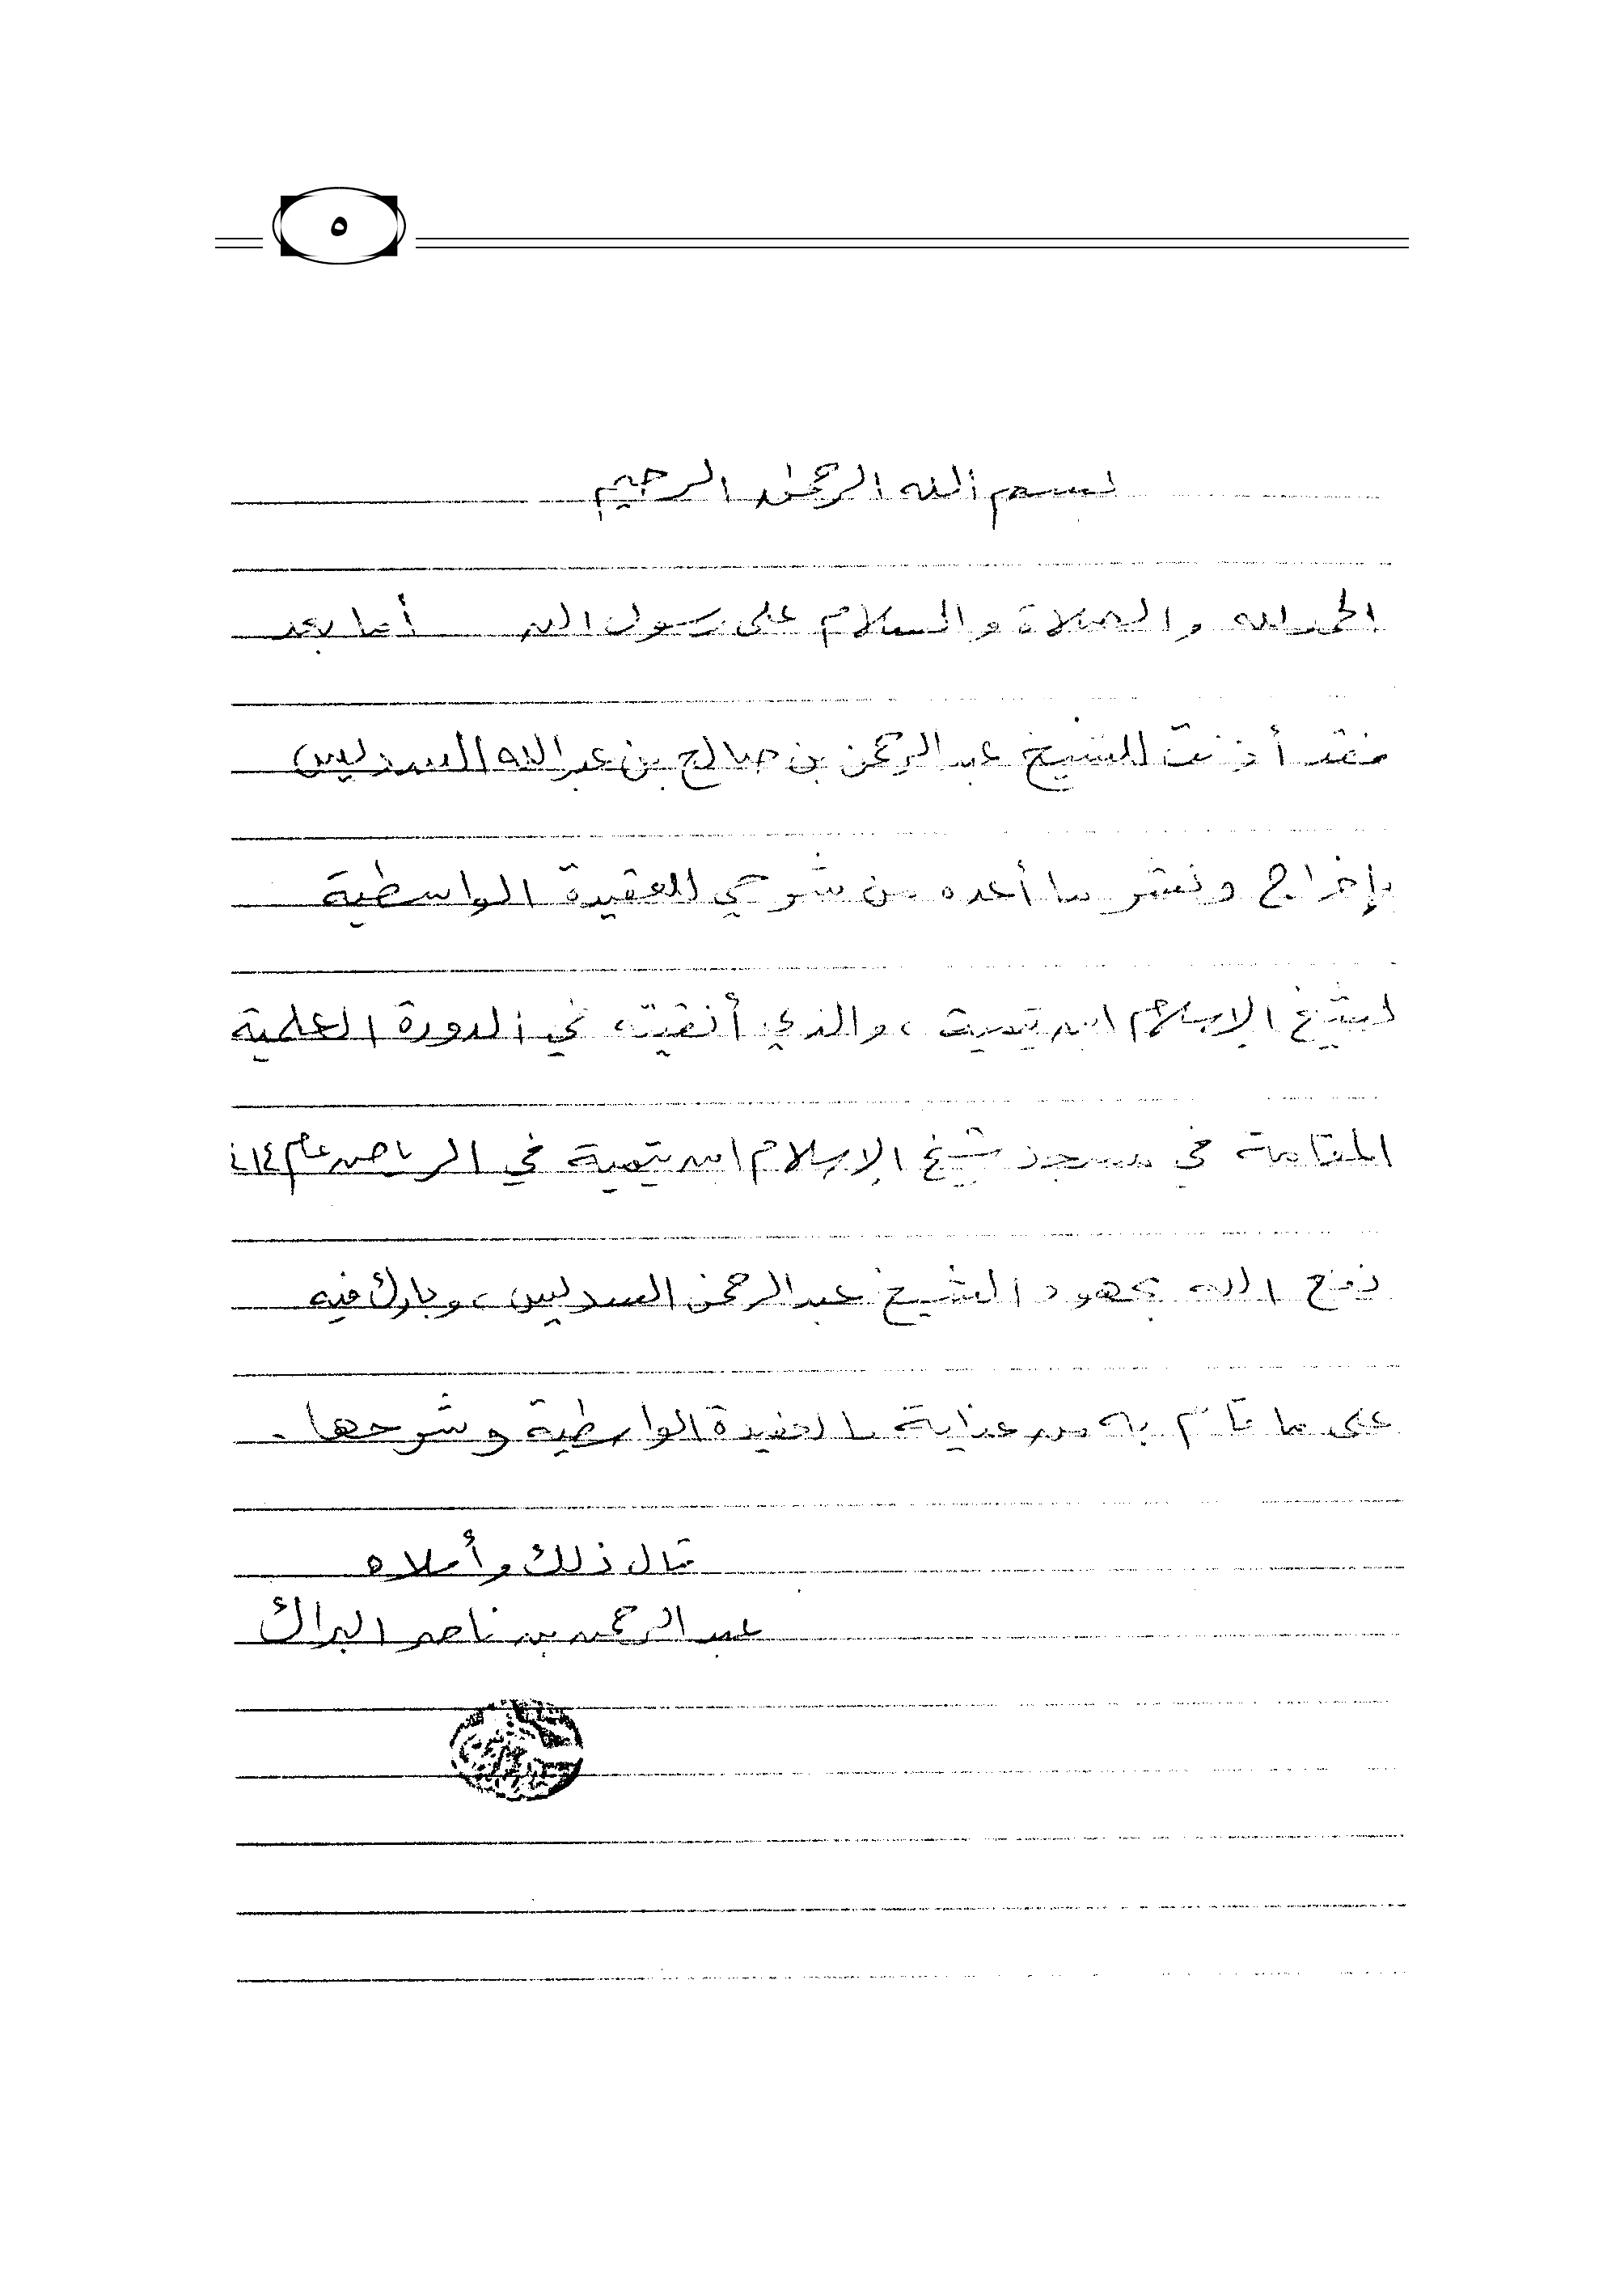 ٥
بسم الله الرحمن الرحيم
الحمد لله والصلاة والسلام على رسول الله أما بعد
فقد أذنت للشيخ عبد الرحمن بن صالح بن عبد الله السديس
بإخراج ونشر ما أعده من شرحي للعقيدة الواسطية
لشيخ الإسلام ابن تيمية، والذي ألقيته في الدورة العلمية
المقامة في مسجد شيخ الإسلام ابن تيمية في الرياض عام
نفع الله بجهود الشيخ عبد الرحمن السديس، وبارك فيه
على ما قام به من عناية بالعقيدة الواسطية وشرحها.
قال ذلك وأملاه
عبد الرحمن بن ناصر البراك